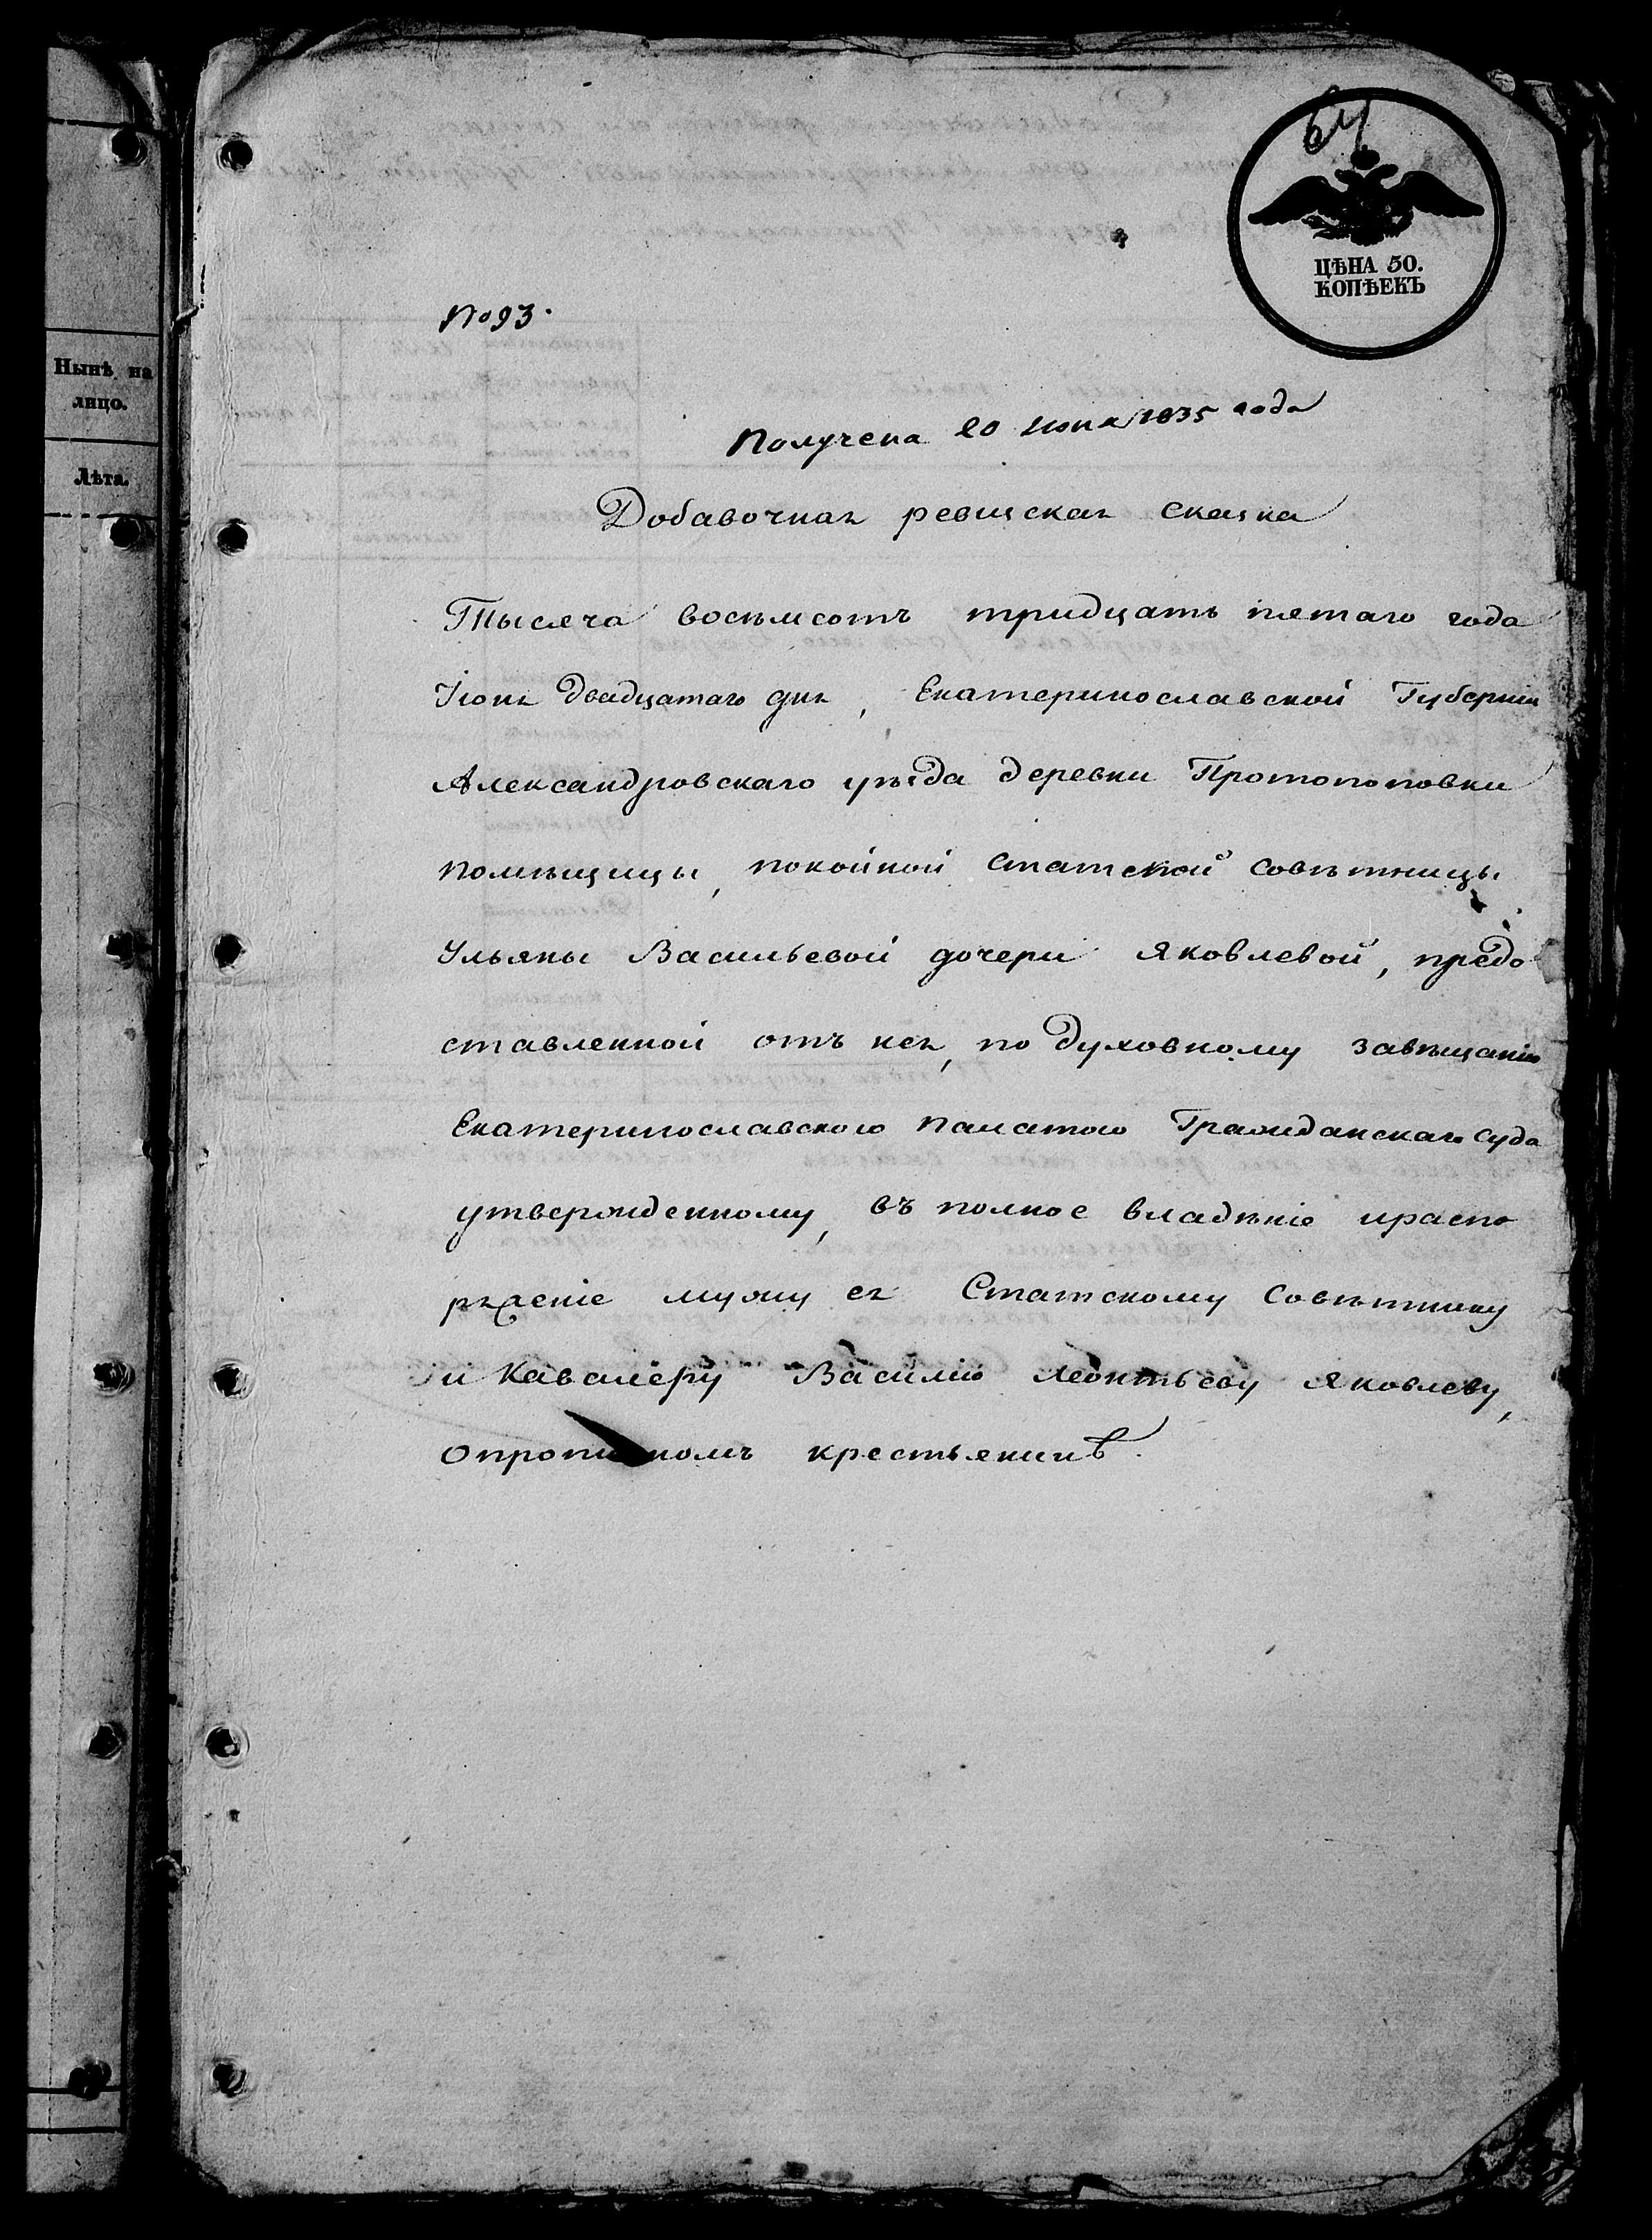 64
ЦѢНА 50.
КОПѢЕКЪ
№ 93.
Нынѣ на
лицо.
Лѣта.
Получена 20 Июня 1835 года
Добавочная ревизская сказка
Тысяча восьмсотъ тридцать пятаго года
Іюня двадцатаго дня, Екатеринославской Губерніи
Александровскаго уѣзда деревни Протопоповки
помѣщицы, покойной Статской Совѣтницы
Ульяны Васильевой дочери Яковлевой, предо
ставленной отъ нея, по духовному завѣщанію
Екатеринославскою Палатою Гражданскаго Суда
утвержденному, въ полное владѣніе ираспо
ряженіе мужу ея Статскому Совѣтнику
и Кавалеру Василію Леонтьеву Яковлеву,
опропи номъ крестьянинѣ.